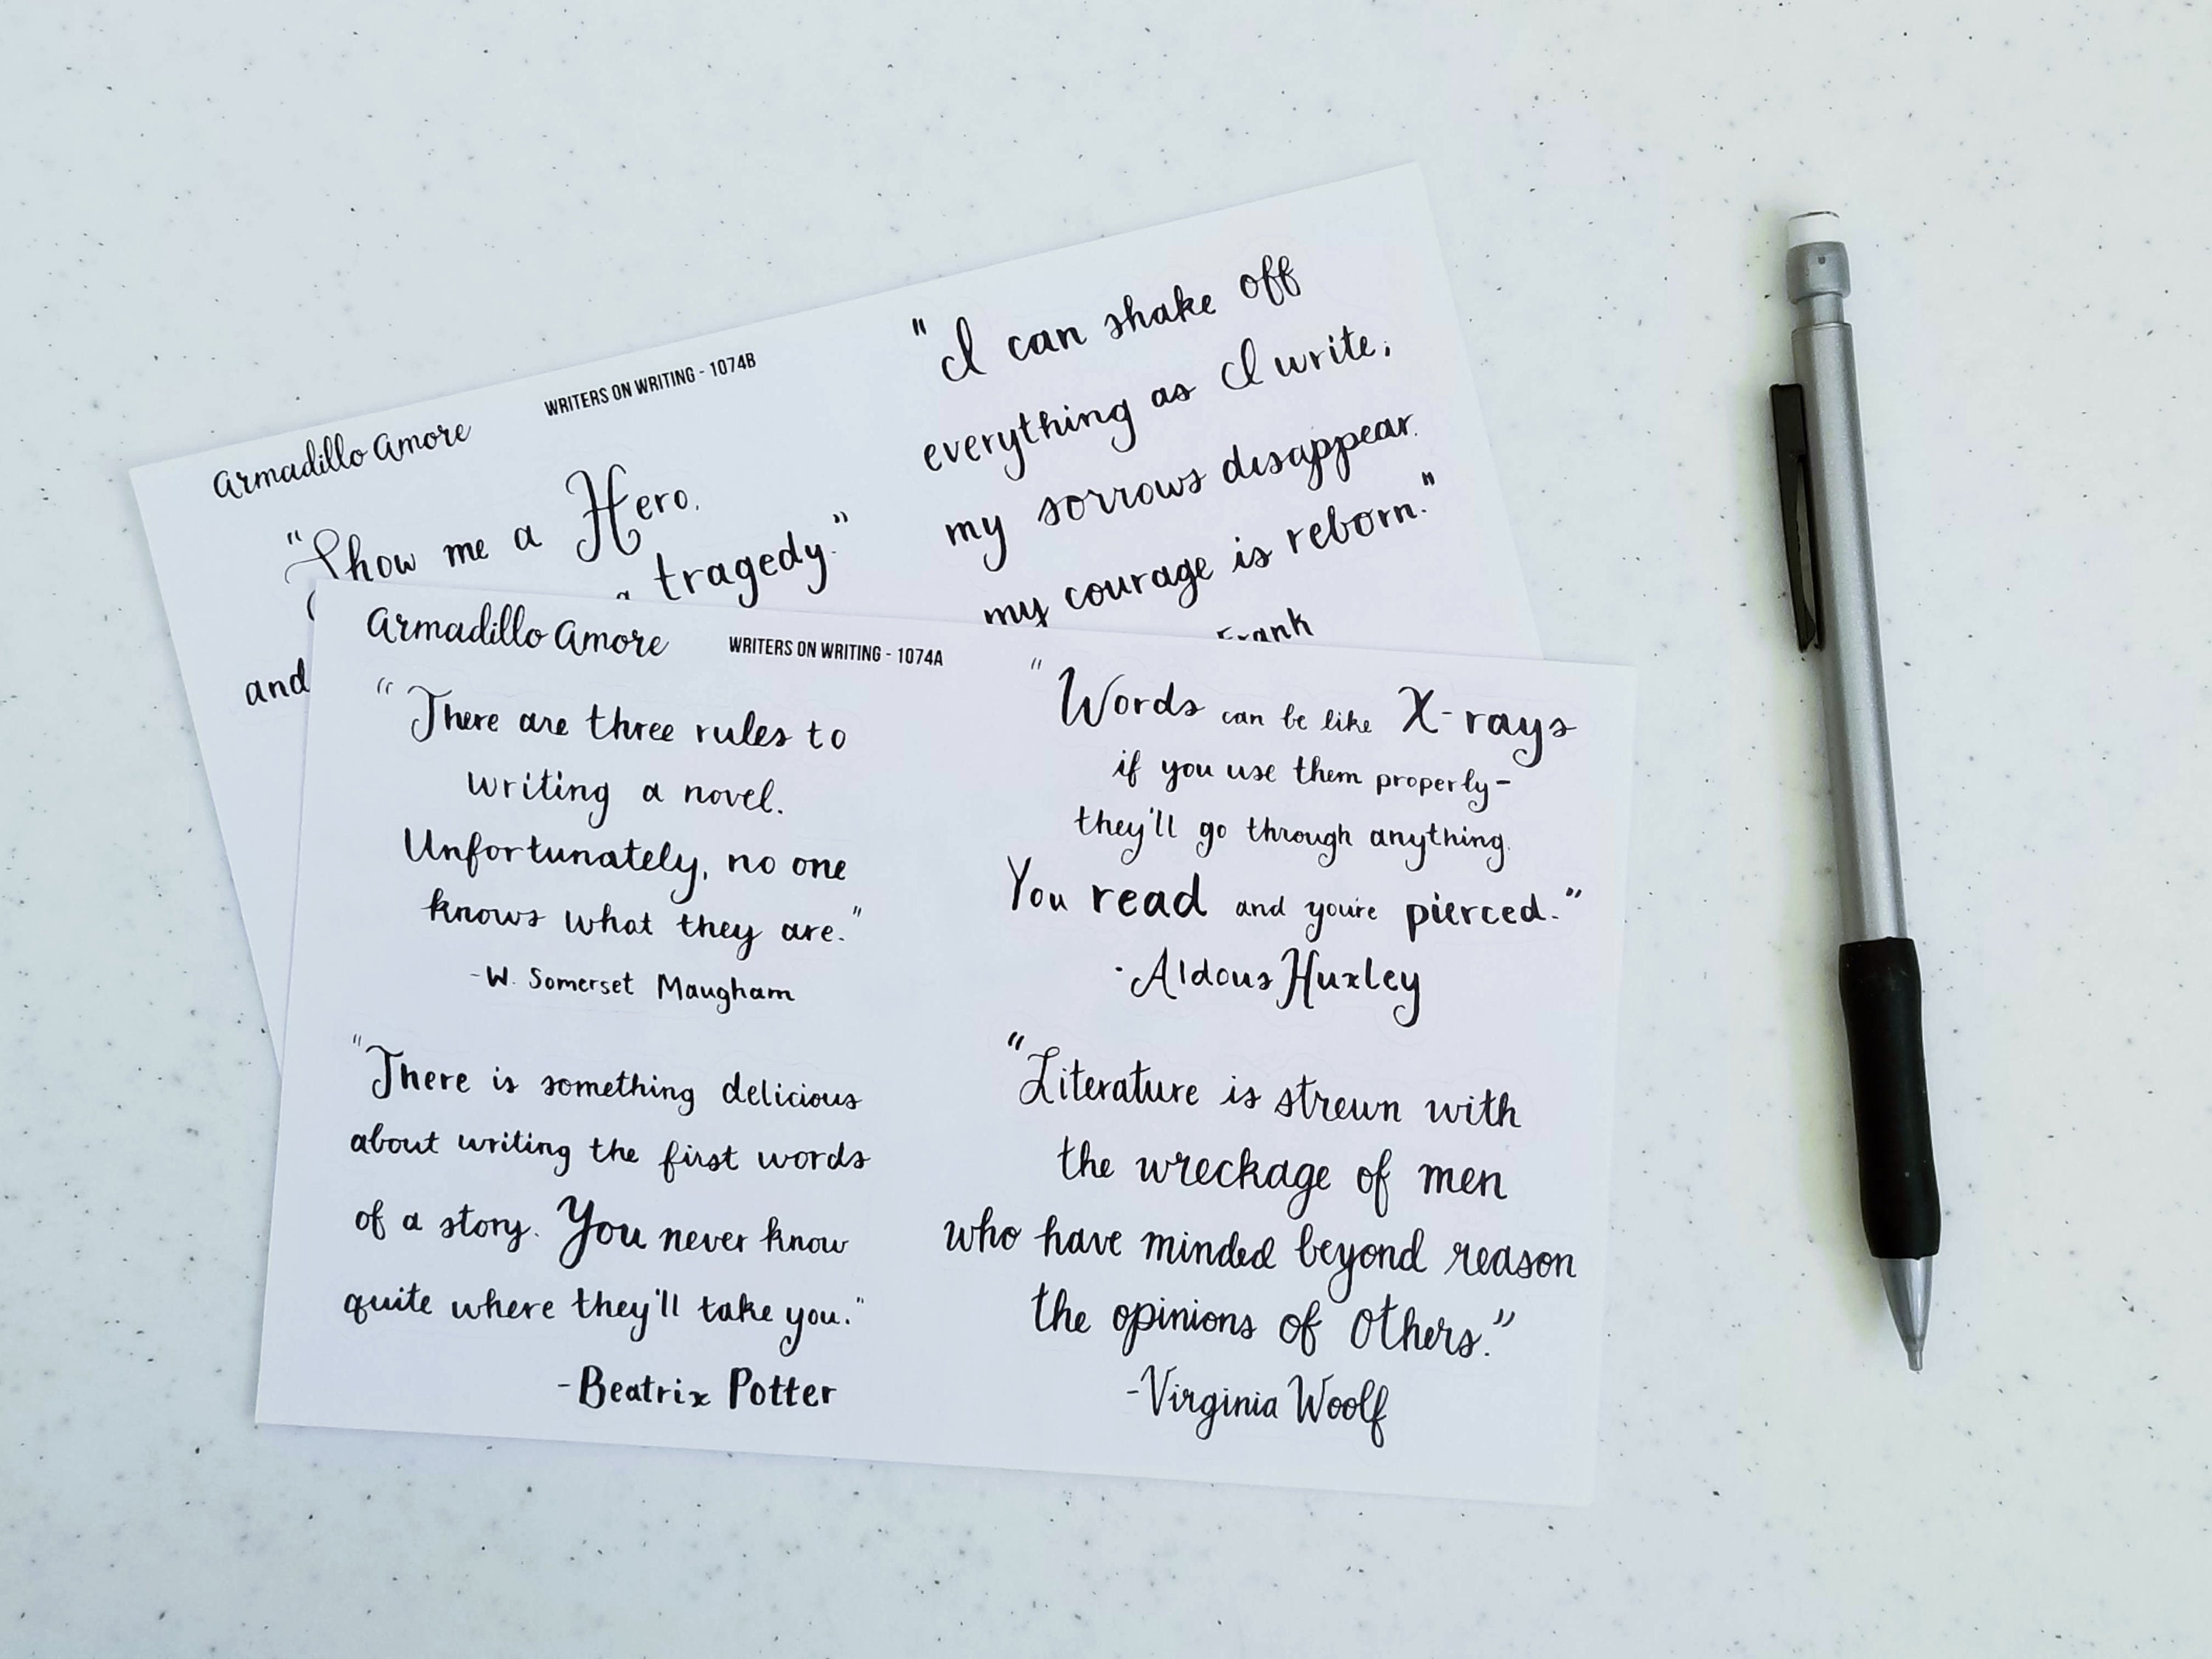 Armadillo Amore
WRITERS ON WRITING - 1074B
"Show me a Hero.
a tragedy."
and
"I can shake off
everything as I write;
my sorrows disappear.
my courage is reborn."
Frank
Armadillo Amore
WRITERS ON WRITING - 1074A
"There are three rules to
writing a novel.
Unfortunately, no one
knows what they are."
-W. Somerset Maugham
"Words can be like X-rays
if you use them properly-
they'll go through anything.
You read and you're pierced."
-Aldous Huxley
"There is something delicious
about writing the first words
of a story. You never know
quite where they'll take you."
-Beatrix Potter
"Literature is strewn with
the wreckage of men
who have minded beyond reason
the opinions of others."
-Virginia Woolf